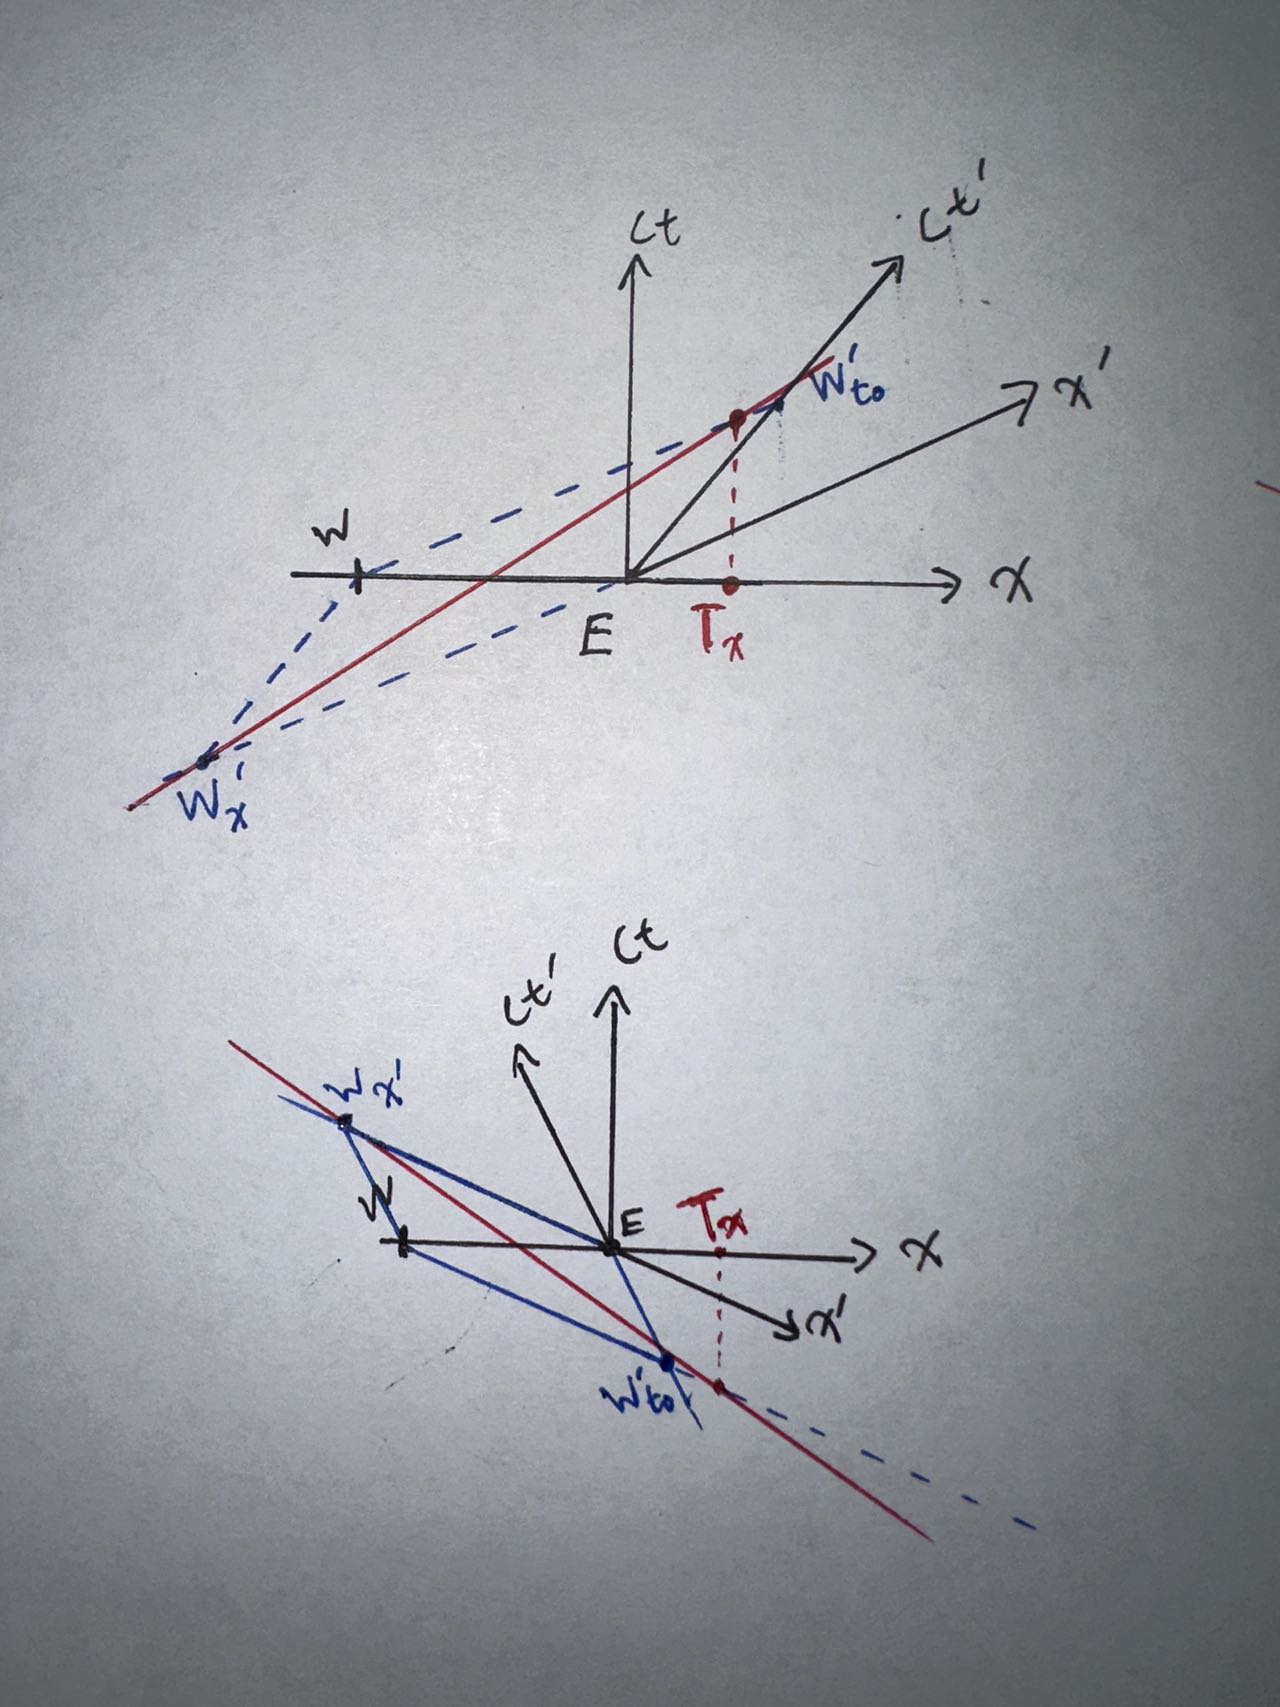 ct
ct'
W'to
x'
W
x
E
Tx
W'x
ct
ct'
Wx'
W
E
Tx
x
x'
W'to